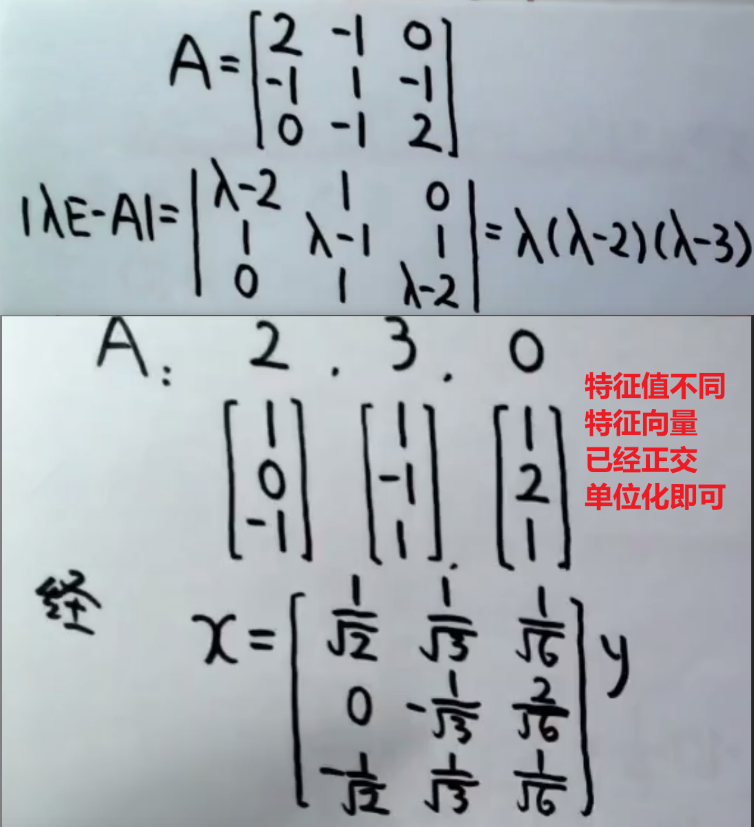 A = [2 -1 0
-1 1 -1
0 -1 2]
|λE-A| = |λ-2 1 0
1 λ-1 1
0 1 λ-2| = λ(λ-2)(λ-3)
A: 2 . 3 . 0
[1 0 -1] [1 -1 1] . [1 2 1]
特征值不同
特征向量
已经正交
单位化即可
经 x = [1/√2 1/√3 1/√6
0 -1/√3 2/√6
-1/√2 1/√3 1/√6] y